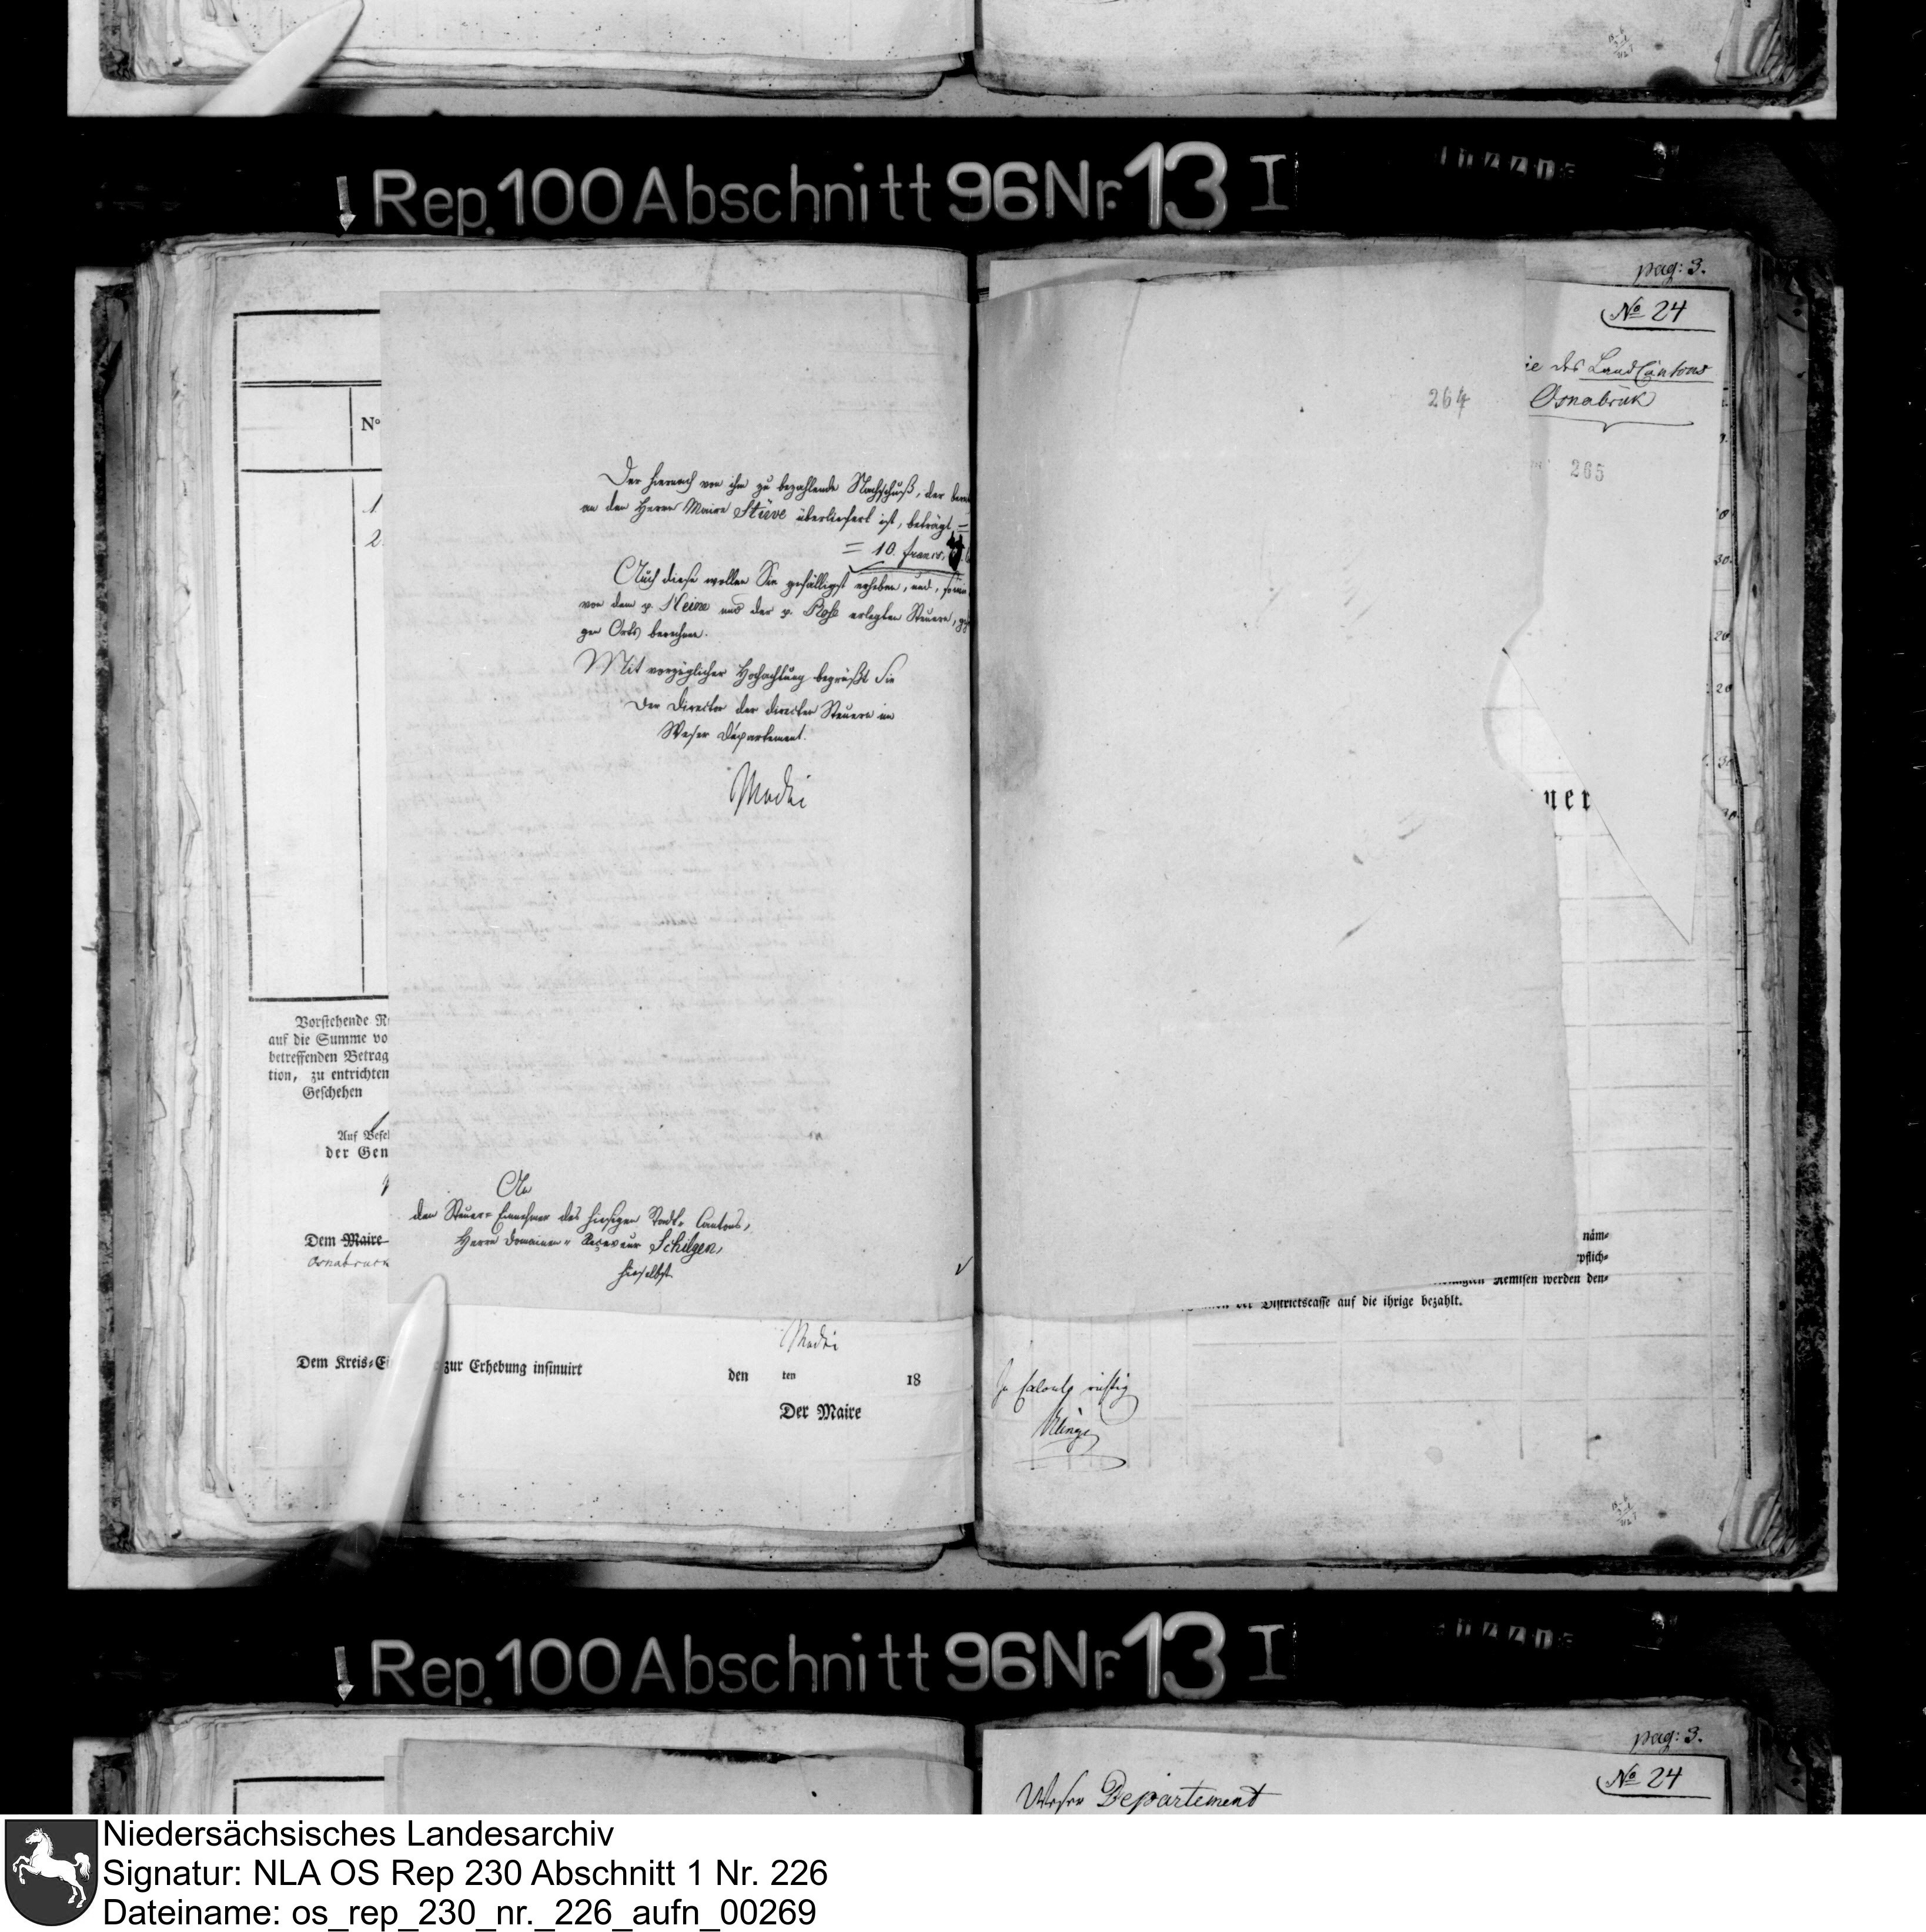 Rep. 100 Abschnitt 96 Nr. 13 I
N°
1
2.
Der hiernach von ihm zu bezahlende Nachschuß, der
an den Herrn Maire Stüve überliefert ist, beträgt =
= 10. francs,
Auch diese wollen Sie gefälligst erheben, und,
von dem p. Heine und der p. erlegten Steuern,
gen Orts berechnen.
Mit vorzüglicher Hochachtung begrüßt Sie
Der Director der directen Steuern im
Weser Département.
An
den Steuer-Einnehmer des hiesigen Stadt-Cantons,
Herrn Domainen-Receveur Schilgen,
hieselbst.
Vorstehende R
auf die Summe vo
betreffenden Betrag
tion, zu entrichten
Geschehen
Auf Befe
der Gen
Dem Maire
Osnabruck
Dem Kreis-Ei zur Erhebung insinuirt den ten 18
Der Maire
pag: 3.
No 24
ie des LandCantons
Osnabrück
264
265
10
30.
20
20
ner
näm-
pflich-
Remisen werden den-
der Districtscasse auf die ihrige bezahlt.
In Calculo richtig
Rep. 100 Abschnitt 96 Nr. 13 I
pag: 3.
No 24
Weser Departement
Niedersächsisches Landesarchiv
Signatur: NLA OS Rep 230 Abschnitt 1 Nr. 226
Dateiname: os_rep_230_nr._226_aufn_00269